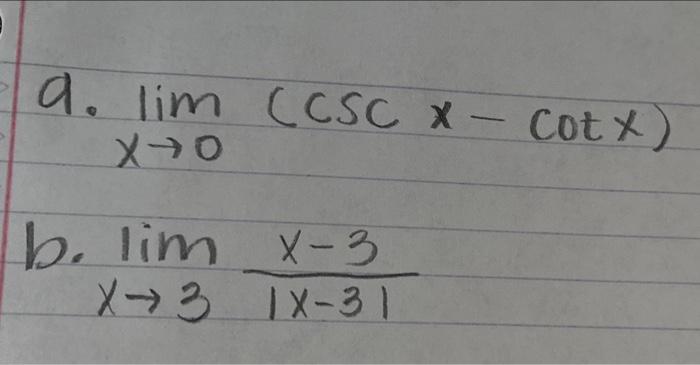 a. lim (csc x - cot x)
x→0
b. lim x-3
x→3 |x-3|